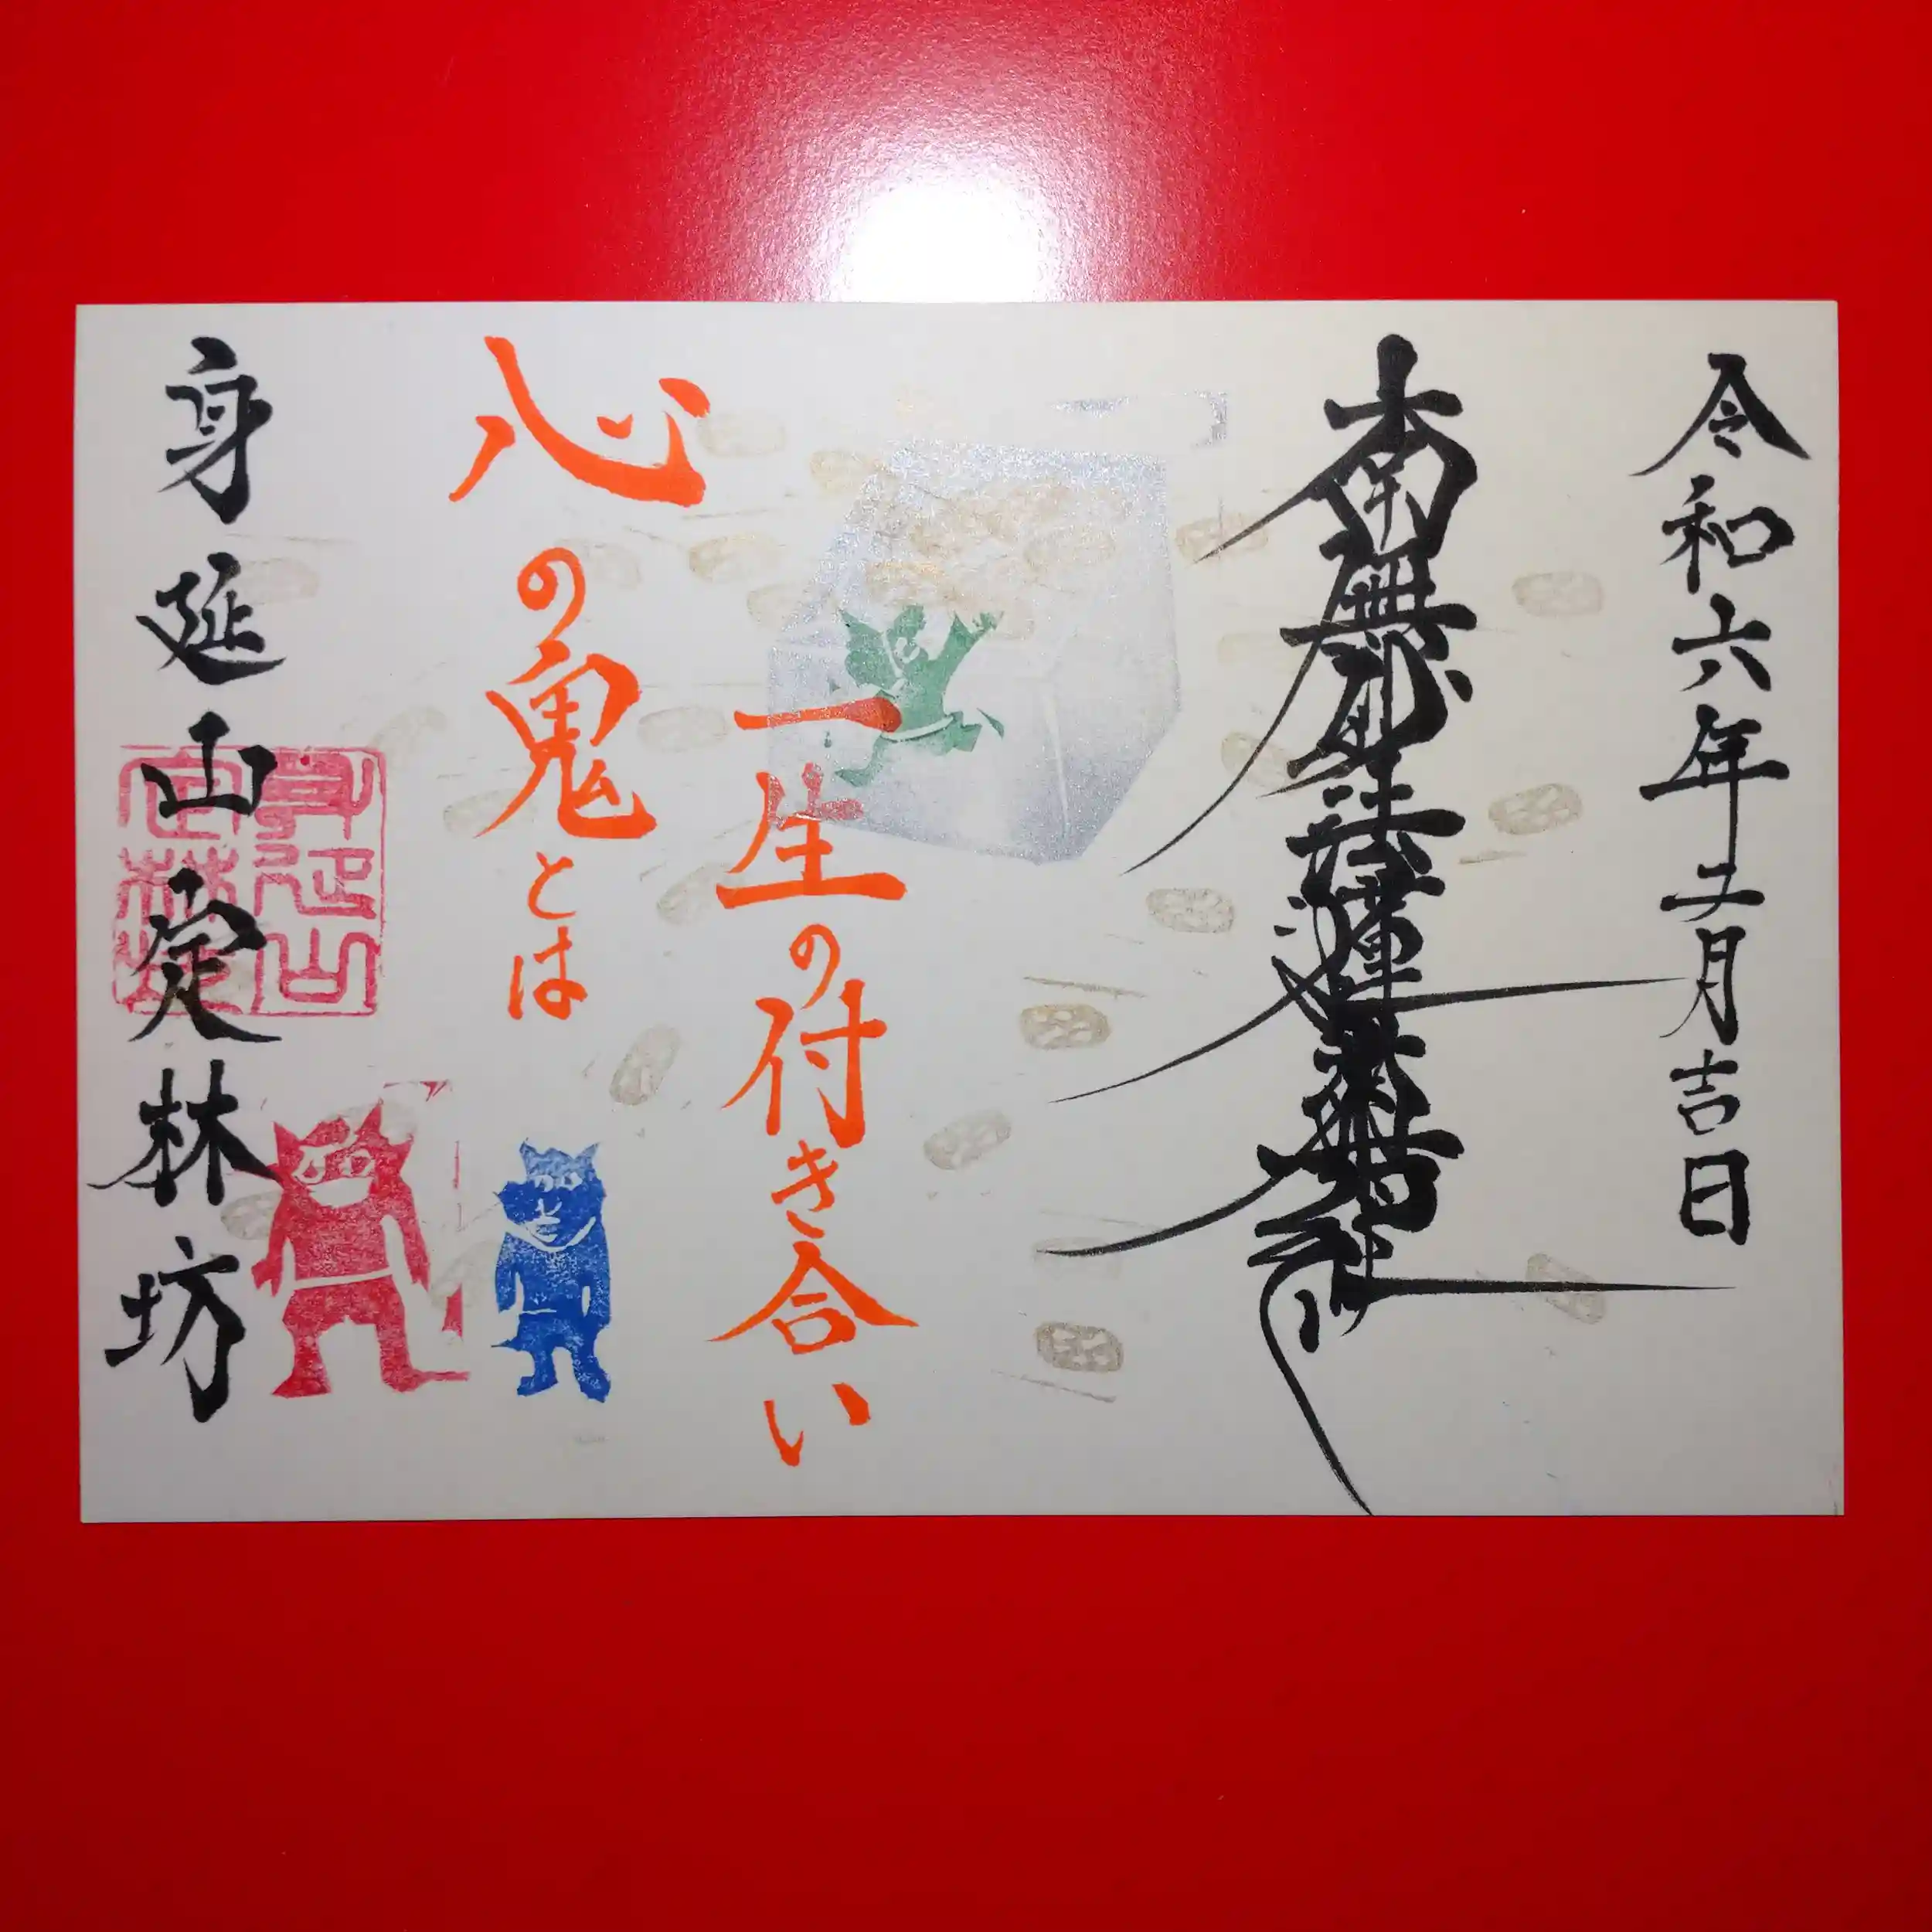 令和六年二月吉日
南無妙法蓮華経
一生の付き合い
心の鬼とは
身延山定林坊
身延山定林坊